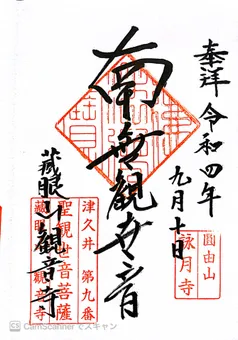 奉拝 令和四年
九月十日
南無観世音
蔵眼山観音寺
圓由山
詠月寺
津久井 第九番
聖観世音菩薩
蔵眼山 観音寺
CS CamScannerでスキャン